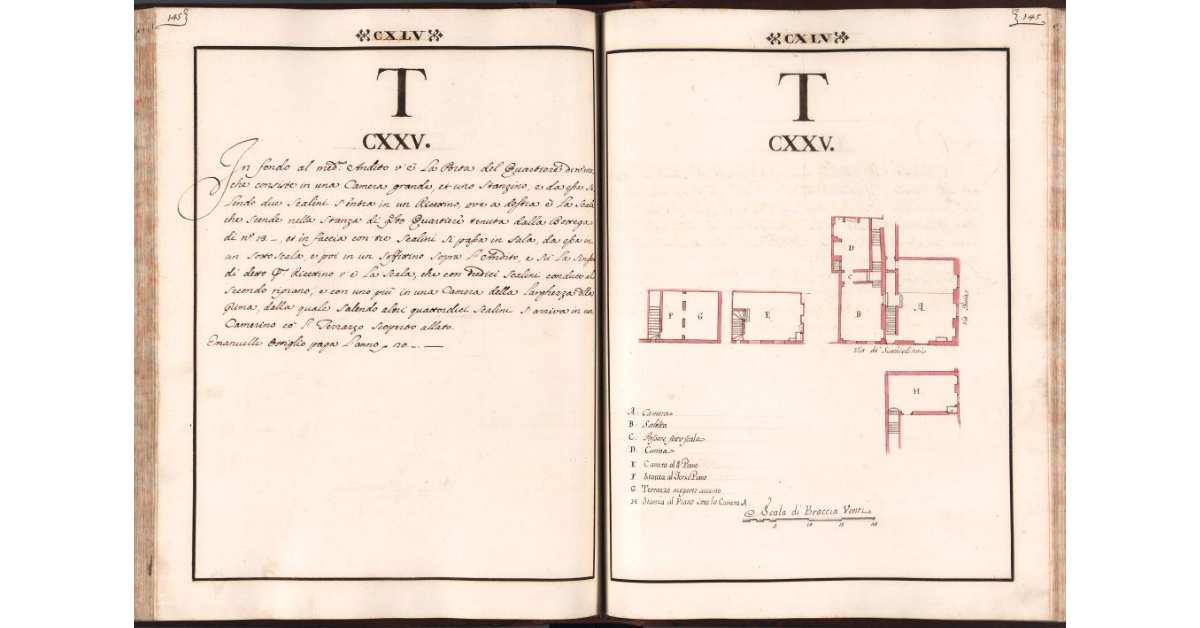 145
CXLV
T
CXXV.
In fondo al med.º Andito v'è La Porta del Quartiere
che consiste in una Camera grande, et uno Stanzino, e da essa sa
lendo due Scalini s'entra in un Ricettino, ove a destra è La Scala
che scende nella Stanza di Quartiere tenuta dalla Bottega
di nº. 12 et in faccia con tre Scalini si passa in Sala, da essa in
un Sottoscala, e poi in un Soffittino sopra L'Andito, e su La
di detto Ricettino v'è La Scala, che con Scalini conduce al
Secondo ripiano, e con uno più in una Camera della Larghezza della
Prima, dalla quale Salendo altri quattordici Scalini s'arriva in un
Camerino co' l' Terrazzo scoperto allato.
Emanuelle paga L'anno 20.
145
CXLV
T
CXXV.
D
C
F G
E
B
A
Via de'
H
A. Camera
B. Saletta
C. sotto scala
D. Cucina
E Camera al 2º Piano
F Stanza al Piano
G Terrazzo scoperto
H Stanza al Piano sotto la Camera A
Scala di Braccia Venti
5 10 15 20